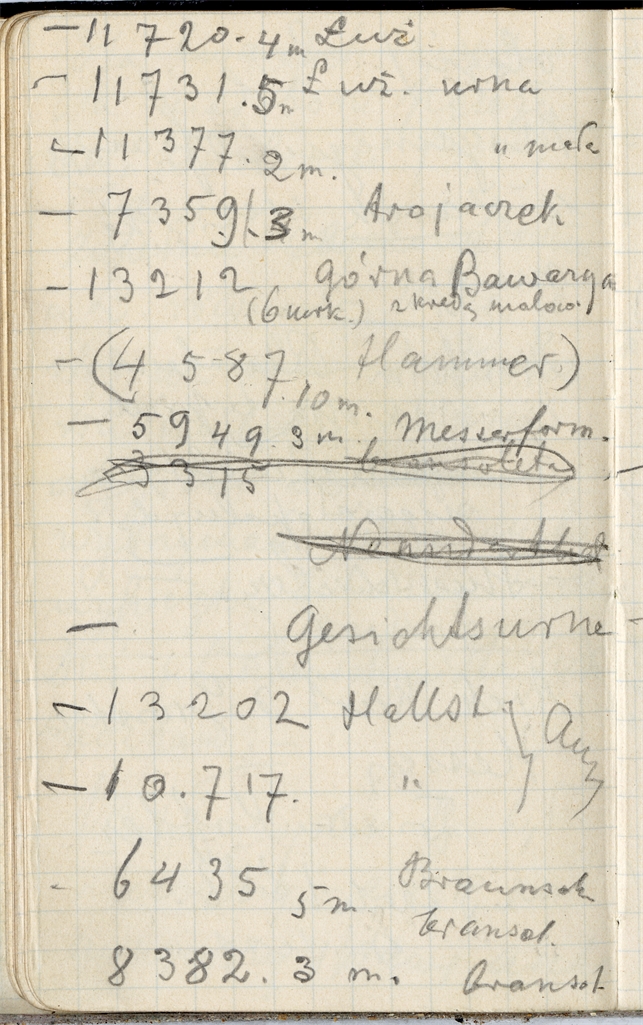 - 11 720. 4 m Łuż.
- 11731. 5 m Łuż. urna
- 11377. 2 m. " mała
- 7359 (. 3 m trojaczek
- 13212 górna Bawarya
(6 mrk.) z kredą malow.
- (4 587. 10 m. Hammer)
- 5949. 3 m. Messerform.
3315
- Gesichtsurne -
- 13202 Hallst.
- 10.717. "
- 6435 5 m Braunsch
transol.
8382. 3 m. transol